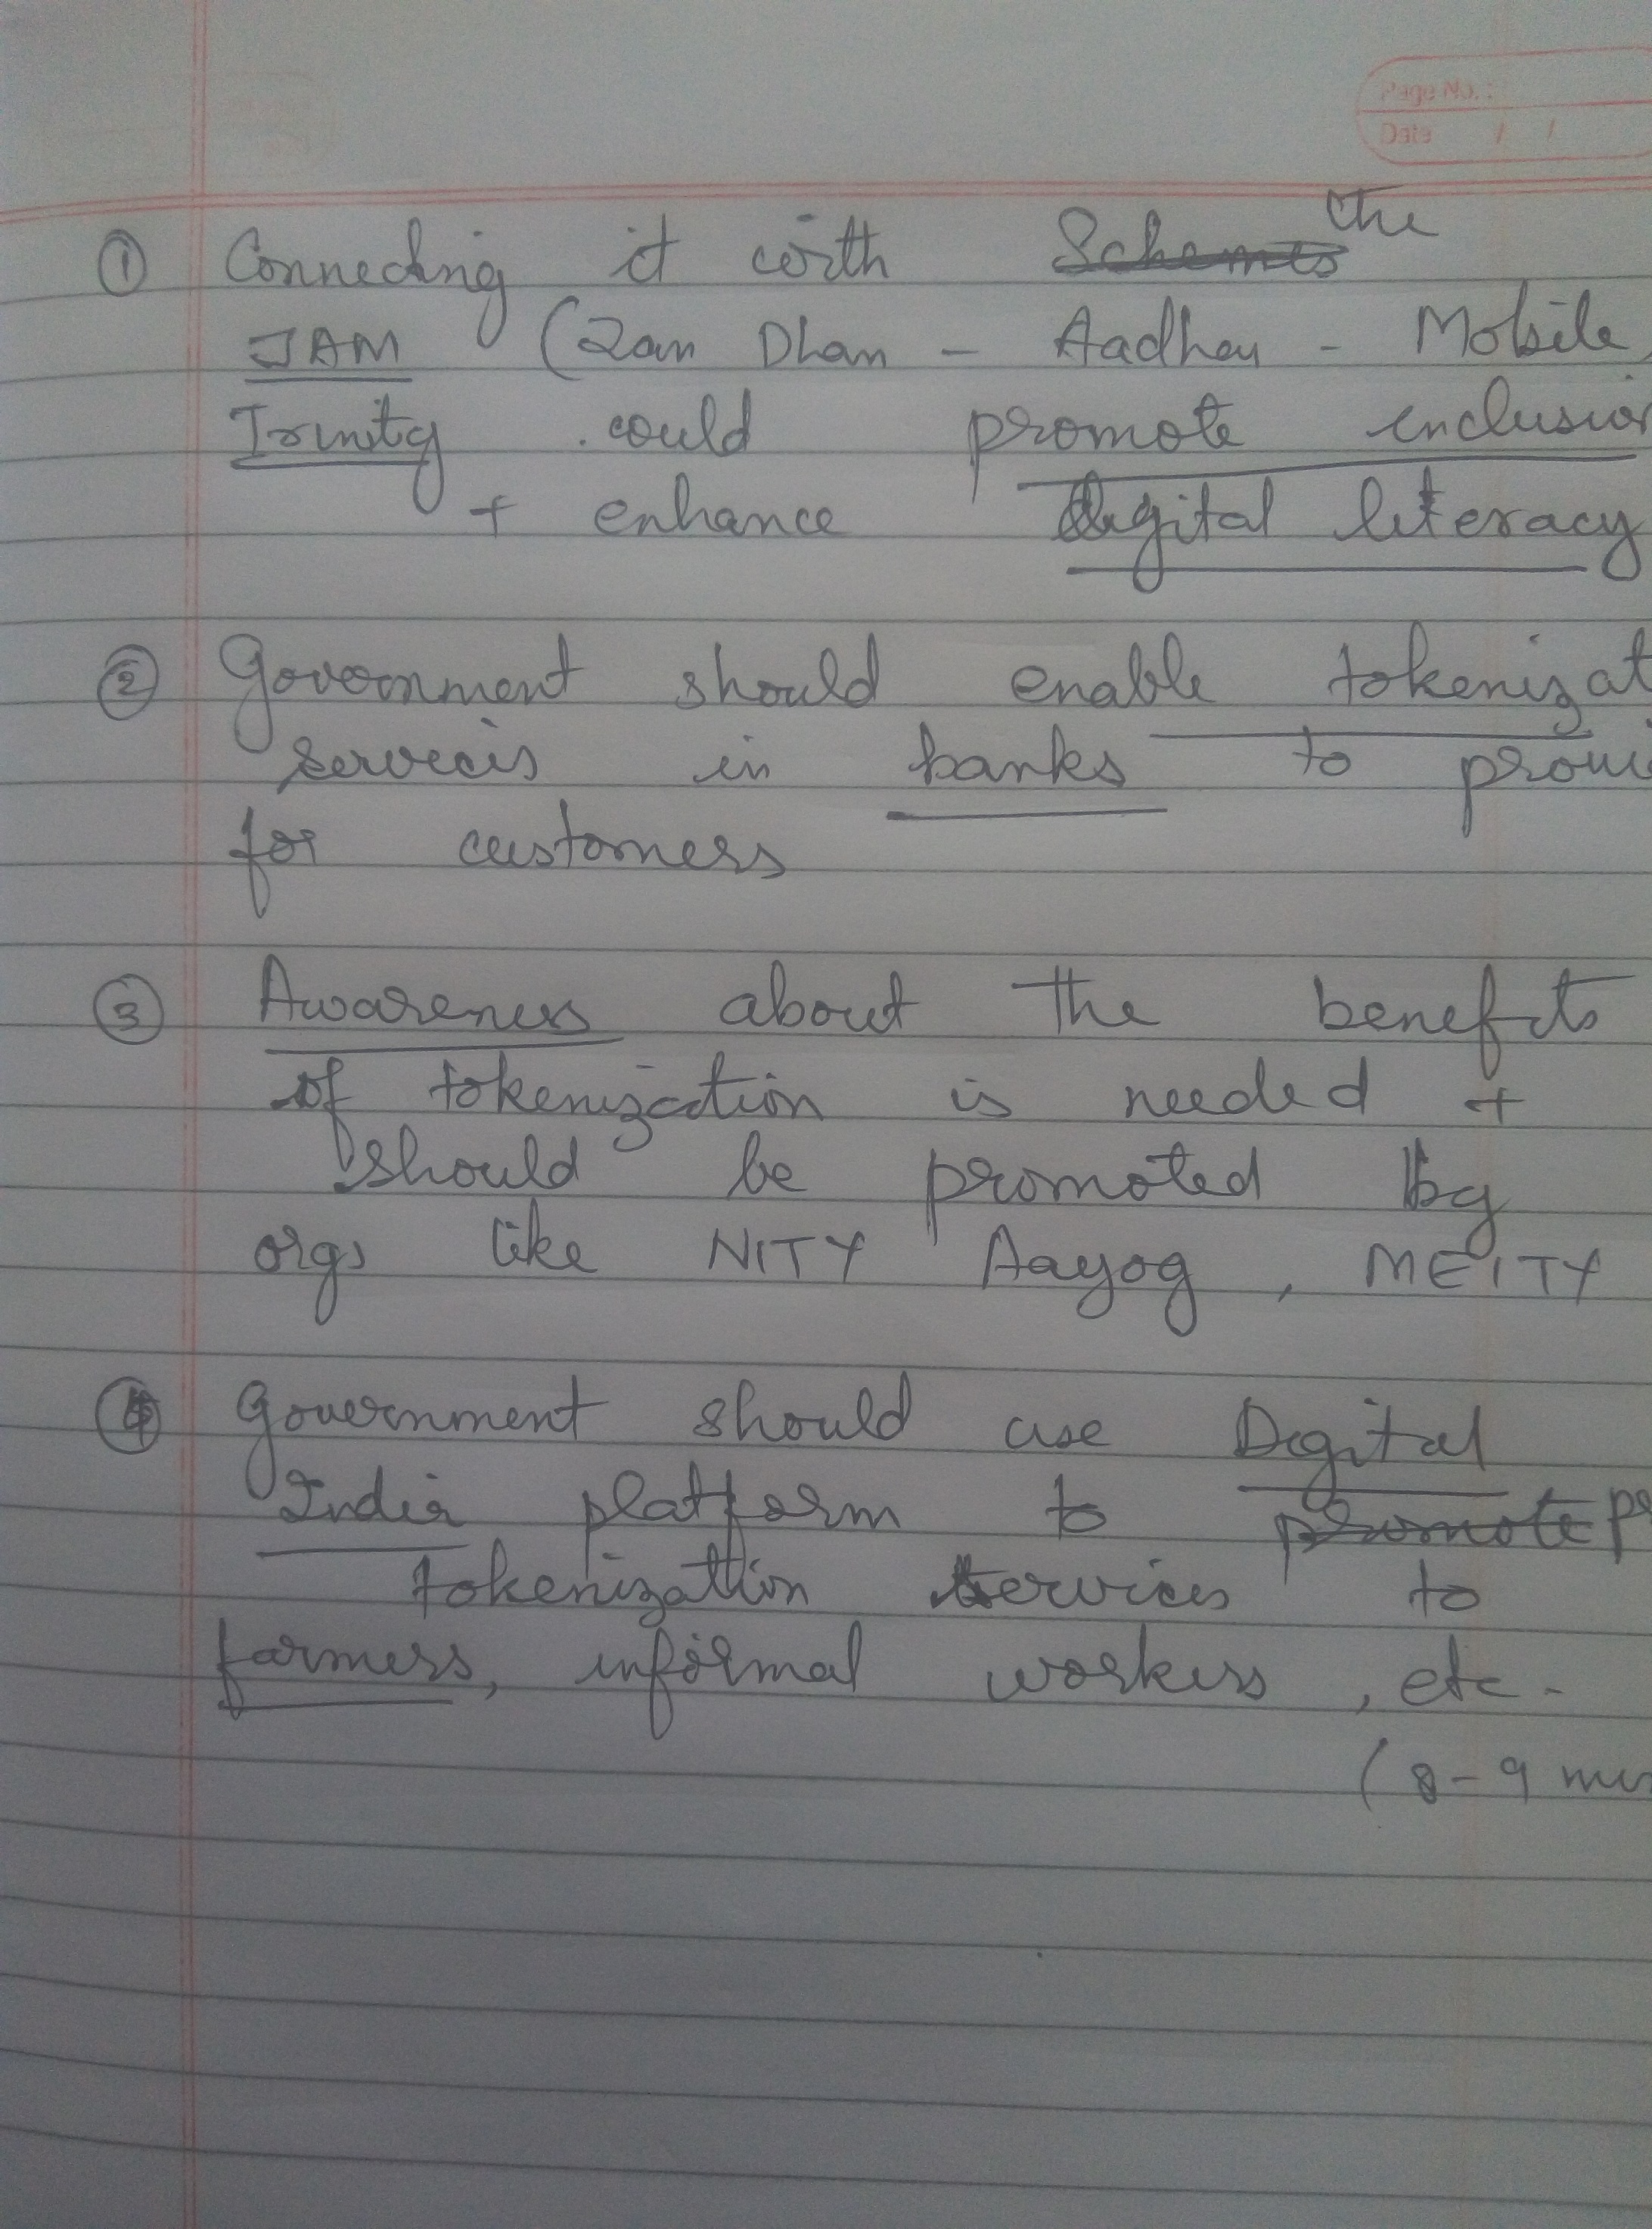 Page No. :
Date / /
the
① Connecting it with Schemes
JAM (Jan Dhan - Aadhar - Mobile
Trinity could promote inclusion
+ enhance digital literacy
② Government should enable tokenizat
services in banks to provi
for customers
③ Awareness about the benefits
of tokenization is needed +
should be promoted by
orgs like NITY Aayog, MEITY
④ Government should use Digital
India platform to promote pr
tokenization services to
farmers, informal workers, etc.
(8-9 min